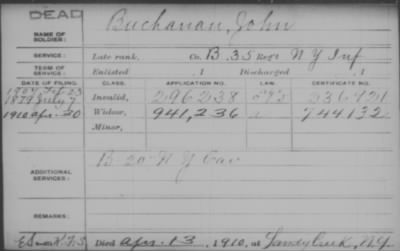 DEAD
NAME OF SOLDIER: Buchanan, John
SERVICE: Late rank, Co. B, 35 Reg't N Y Inf
TERM OF SERVICE: Enlisted 1 Discharged 1
DATE OF FILING. CLASS. APPLICATION NO. LAW. CERTIFICATE NO.
1879 July 7 Invalid, 296238
1910 Apr. 20 Widow, 941,236 744132
Minor,
ADDITIONAL SERVICES: B 20 N Y Cav
REMARKS:
Died Apr. 13, 1910, at Sandy Creek, N.Y.